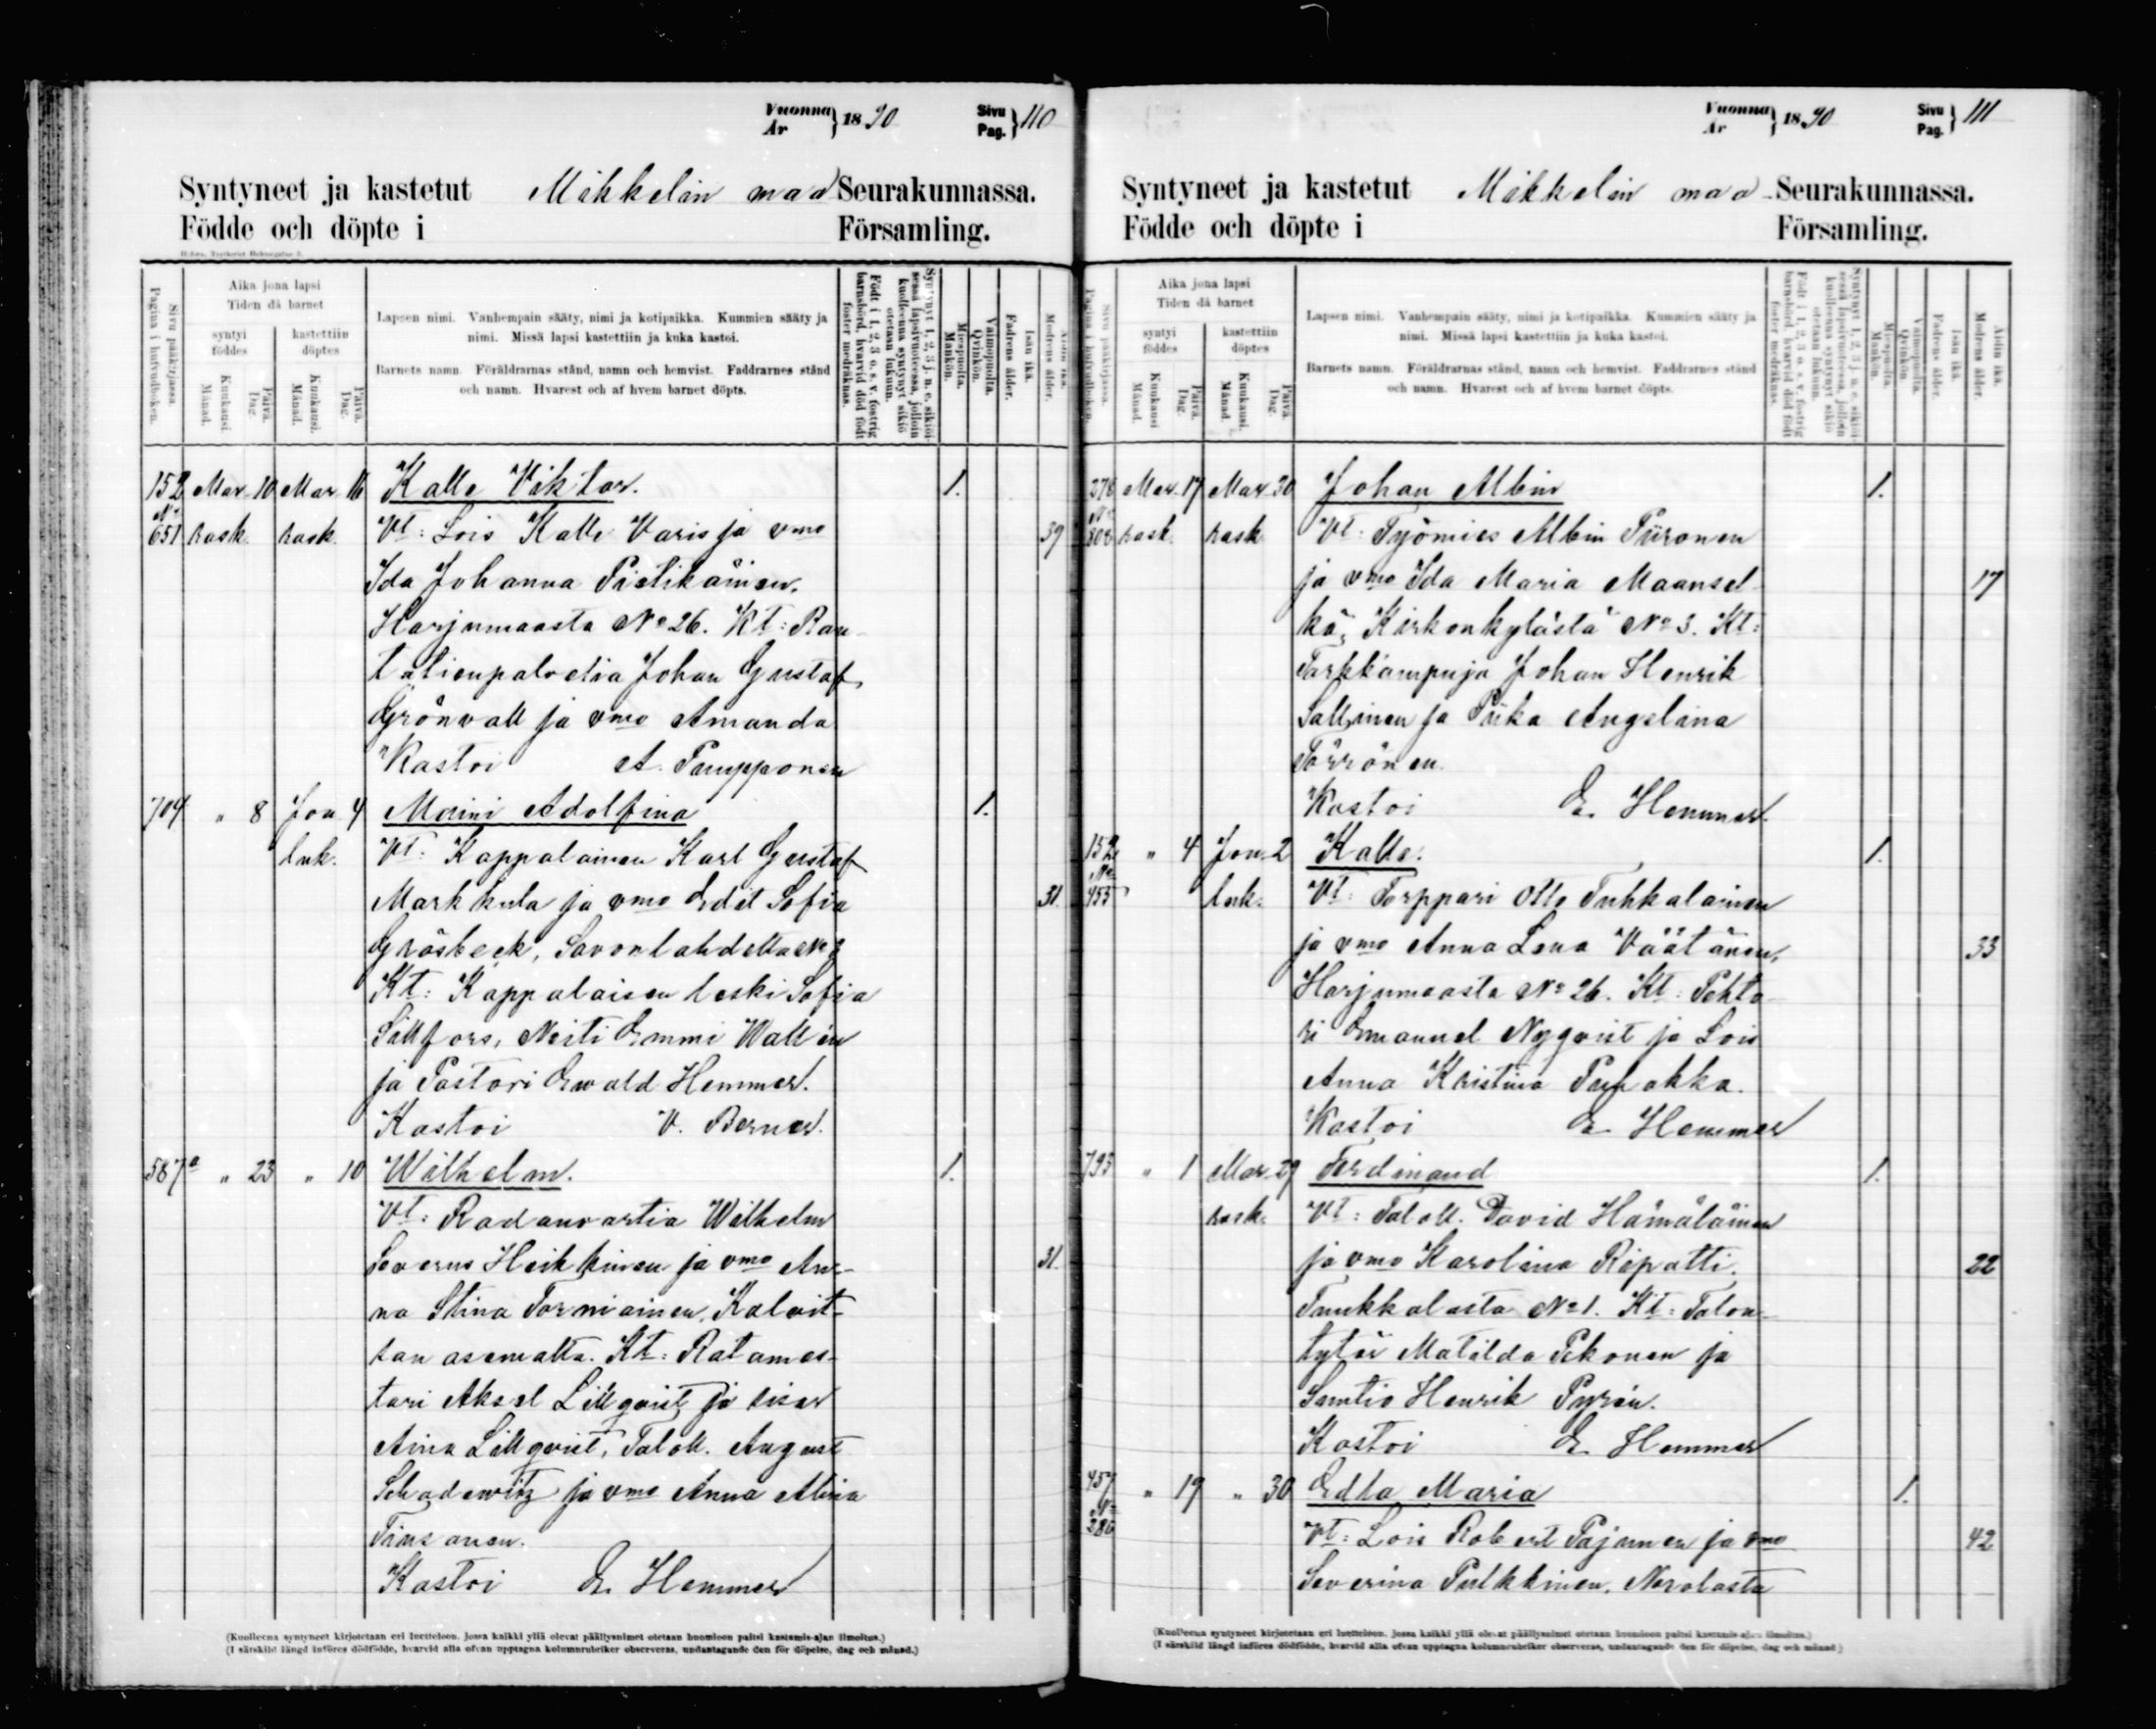 Vuonna
År } 1890 Sivu
Pag. } 110
Syntyneet ja kastetut Mikkelin maa Seurakunnassa.
Födde och döpte i Församling.
Sivu pääkirjassa.
Pagina i hufvudboken.
Aika jona lapsi
Tiden då barnet
syntyi kastettiin
föddes döptes
Kuukausi Månad. Päivä. Dag. Kuukausi. Månad. Päivä. Dag.
Lapsen nimi. Vanhempain sääty, nimi ja kotipaikka. Kummien sääty ja
nimi. Missä lapsi kastettiin ja kuka kastoi.
Barnets namn. Föräldrarnas stånd, namn och hemvist. Faddrarnes stånd
och namn. Hvarest och af hvem barnet döpts.
Syntynyt 1, 2, 3 j. n. e. sikiöisessä lapsivuoteessa, jolloin kuolleenna syntynyt sikiö otetaan lukuun.
Född i 1, 2, 3 o. s. v. fostrig barnsbörd, hvarvid död född foster medräknas.
Miespuolta. Mankön.
Vaimopuolta. Qvinkön.
Isän ikä. Fadrens ålder.
Äidin ikä. Modrens ålder.
152 Mar. 10 Mar. 16 Kalle Viktor. 1.
No 651 rask. rask. Vt: Lois Kalle Varis ja vmo 39
Ida Johanna Pietikäinen,
Harjumaasta No 26. Kt: Rau-
tatienpalvelia Johan Gustaf
Grönvall ja vmo Amanda
Kastoi A. Pampponen
704 " 8 Jou 4 Maini Adolfina 1.
luk. Vt: Kappalainen Karl Gustaf
Markkula ja vmo Edit Sofia 31.
Gräsbeck, Savonlahdelta No 3
Kt: Kappalaisen leski Sofia
Sillfors, Neiti Emmi Wallin
ja Pastori Ewald Hemmer.
Kastoi V. Berner.
587a " 23 " 10 Wilhelm. 1.
Vt: Radanvartia Wilhelm
Severus Heikkinen ja vmo An- 31.
na Stina Torniainen, Kalvit-
san asemalta. Kt: Ratames-
tari Aksel Lillqvist ja sisar
Aina Lillqvist, Taloll. August
Schadewitz ja vmo Anna Alina
Kastoi E. Hemmer
(Kuolleena syntyneet kirjotetaan eri luetteloon, jossa kaikki yllä olevat päällysnimet otetaan huomioon paitsi kastamis-ajan ilmoitus.)
(I särskild längd införes dödfödde, hvarvid alla ofvan upptagna kolumnrubriker observeras, undantagande den för döpelse, dag och månad.)
Vuonna
År } 1890 Sivu
Pag. } 111
Syntyneet ja kastetut Mikkelin maa- Seurakunnassa.
Födde och döpte i Församling.
Sivu pääkirjassa.
Pagina i hufvudboken.
Aika jona lapsi
Tiden då barnet
syntyi kastettiin
föddes döptes
Kuukausi Månad. Päivä. Dag. Kuukausi. Månad. Päivä. Dag.
Lapsen nimi. Vanhempain sääty, nimi ja kotipaikka. Kummien sääty ja
nimi. Missä lapsi kastettiin ja kuka kastoi.
Barnets namn. Föräldrarnas stånd, namn och hemvist. Faddrarnes stånd
och namn. Hvarest och af hvem barnet döpts.
Syntynyt 1, 2, 3 j. n. e. sikiöisessä lapsivuoteessa, jolloin kuolleenna syntynyt sikiö otetaan lukuun.
Född i 1, 2, 3 o. s. v. fostrig barnsbörd, hvarvid död född foster medräknas.
Miespuolta. Mankön.
Vaimopuolta. Qvinkön
Isän ikä. Fadrens ålder.
Äidin ikä. Modrens ålder.
376 Mar. 17 Mar. 30 Johan Albin 1.
No 802 rask. rask. Vt: Työmies Albin Piironen
ja vmo Ida Maria Maansel- 17
kä, Kirkonkylästä No 3. Kt:
Tarkkampuja Johan Henrik
Sallinen ja Piika Angelina
Törrönen.
Kastoi E. Hemmer
152 " 4 Jou. 2 Kalle. 1.
No 455 luk. Vt: Torppari Otto Tuhkalainen
ja vmo Anna Lena Väätänen, 33
Harjumaasta No 26. Kt: Pehto-
ri Emanuel Nyqvist ja Lois
Anna Kristina
Kastoi E. Hemmer
793 " 1 Mar. 29 Ferdinand 1.
rask. Vt: Taloll. David Hämäläinen
ja vmo Karolina Ripatti, 22
Tuukkalasta No 1. Kt: Talon-
tytär Matilda Pekonen ja
Suntio Henrik Pyrén.
Kastoi E. Hemmer
457 " 19 " 30 Edla Maria 1.
No 286 Vt: Lois Robert Pajunen ja vmo 42
Severina Pulkkinen, Norolasta
(Kuolleena syntyneet kirjotetaan eri luetteloon, jossa kaikki yllä olevat päällysnimet otetaan huomioon paitsi kastamis-ajan ilmoitus.)
(I särskild längd införes dödfödde, hvarvid alla ofvan upptagna kolumnrubriker observeras, undantagande den för döpelse, dag och månad.)